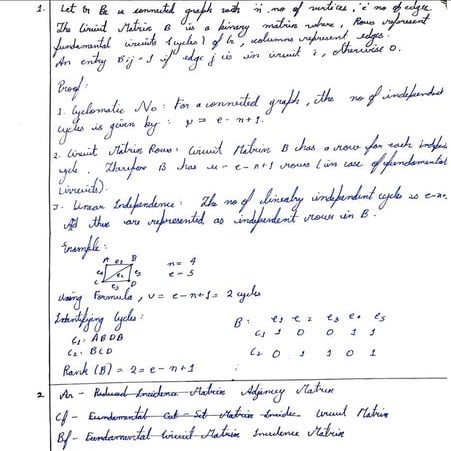 1. Let G Be a connected graph with 'n' no of vertices, 'e' no of edges
The Circuit Matrix B is a binary matrix where, Rows represent
fundamental circuits (cycles) of G, columns represent edges.
An entry Bij = 1 if edge j is in circuit i, otherwise 0.
Proof:
1. Cyclomatic No: For a connected graph, the no of independent
cycles is given by: μ = e - n + 1.
2. Circuit Matrix Rows: Circuit Matrix B has a row for each
cycle. Therefor B has u - e - n + 1 rows (in case of fundamental
circuits).
3. Linear Independence: The no of linearly independent cycles is e-n
And thus are represented as independent rows in B.
Example:
A e1 B
n = 4
e4 e2 e5
e - 5
C e3 D
Using Formula, v = e - n + 1 = 2 cycles
Identifying Cycles:
B: e1 e2 e3 e4 e5
C1: ABDB
C1 1 0 0 1 1
C2: BCD
C2 0 1 1 0 1
Rank (B) = 2 = e - n + 1
2 Ar - Reduced Incidence Matrix Adjency Matrix
Cf - Fundamental Cut-Set Matrix Circuit Matrix
Bf - Fundamental Circuit Matrix Incidence Matrix